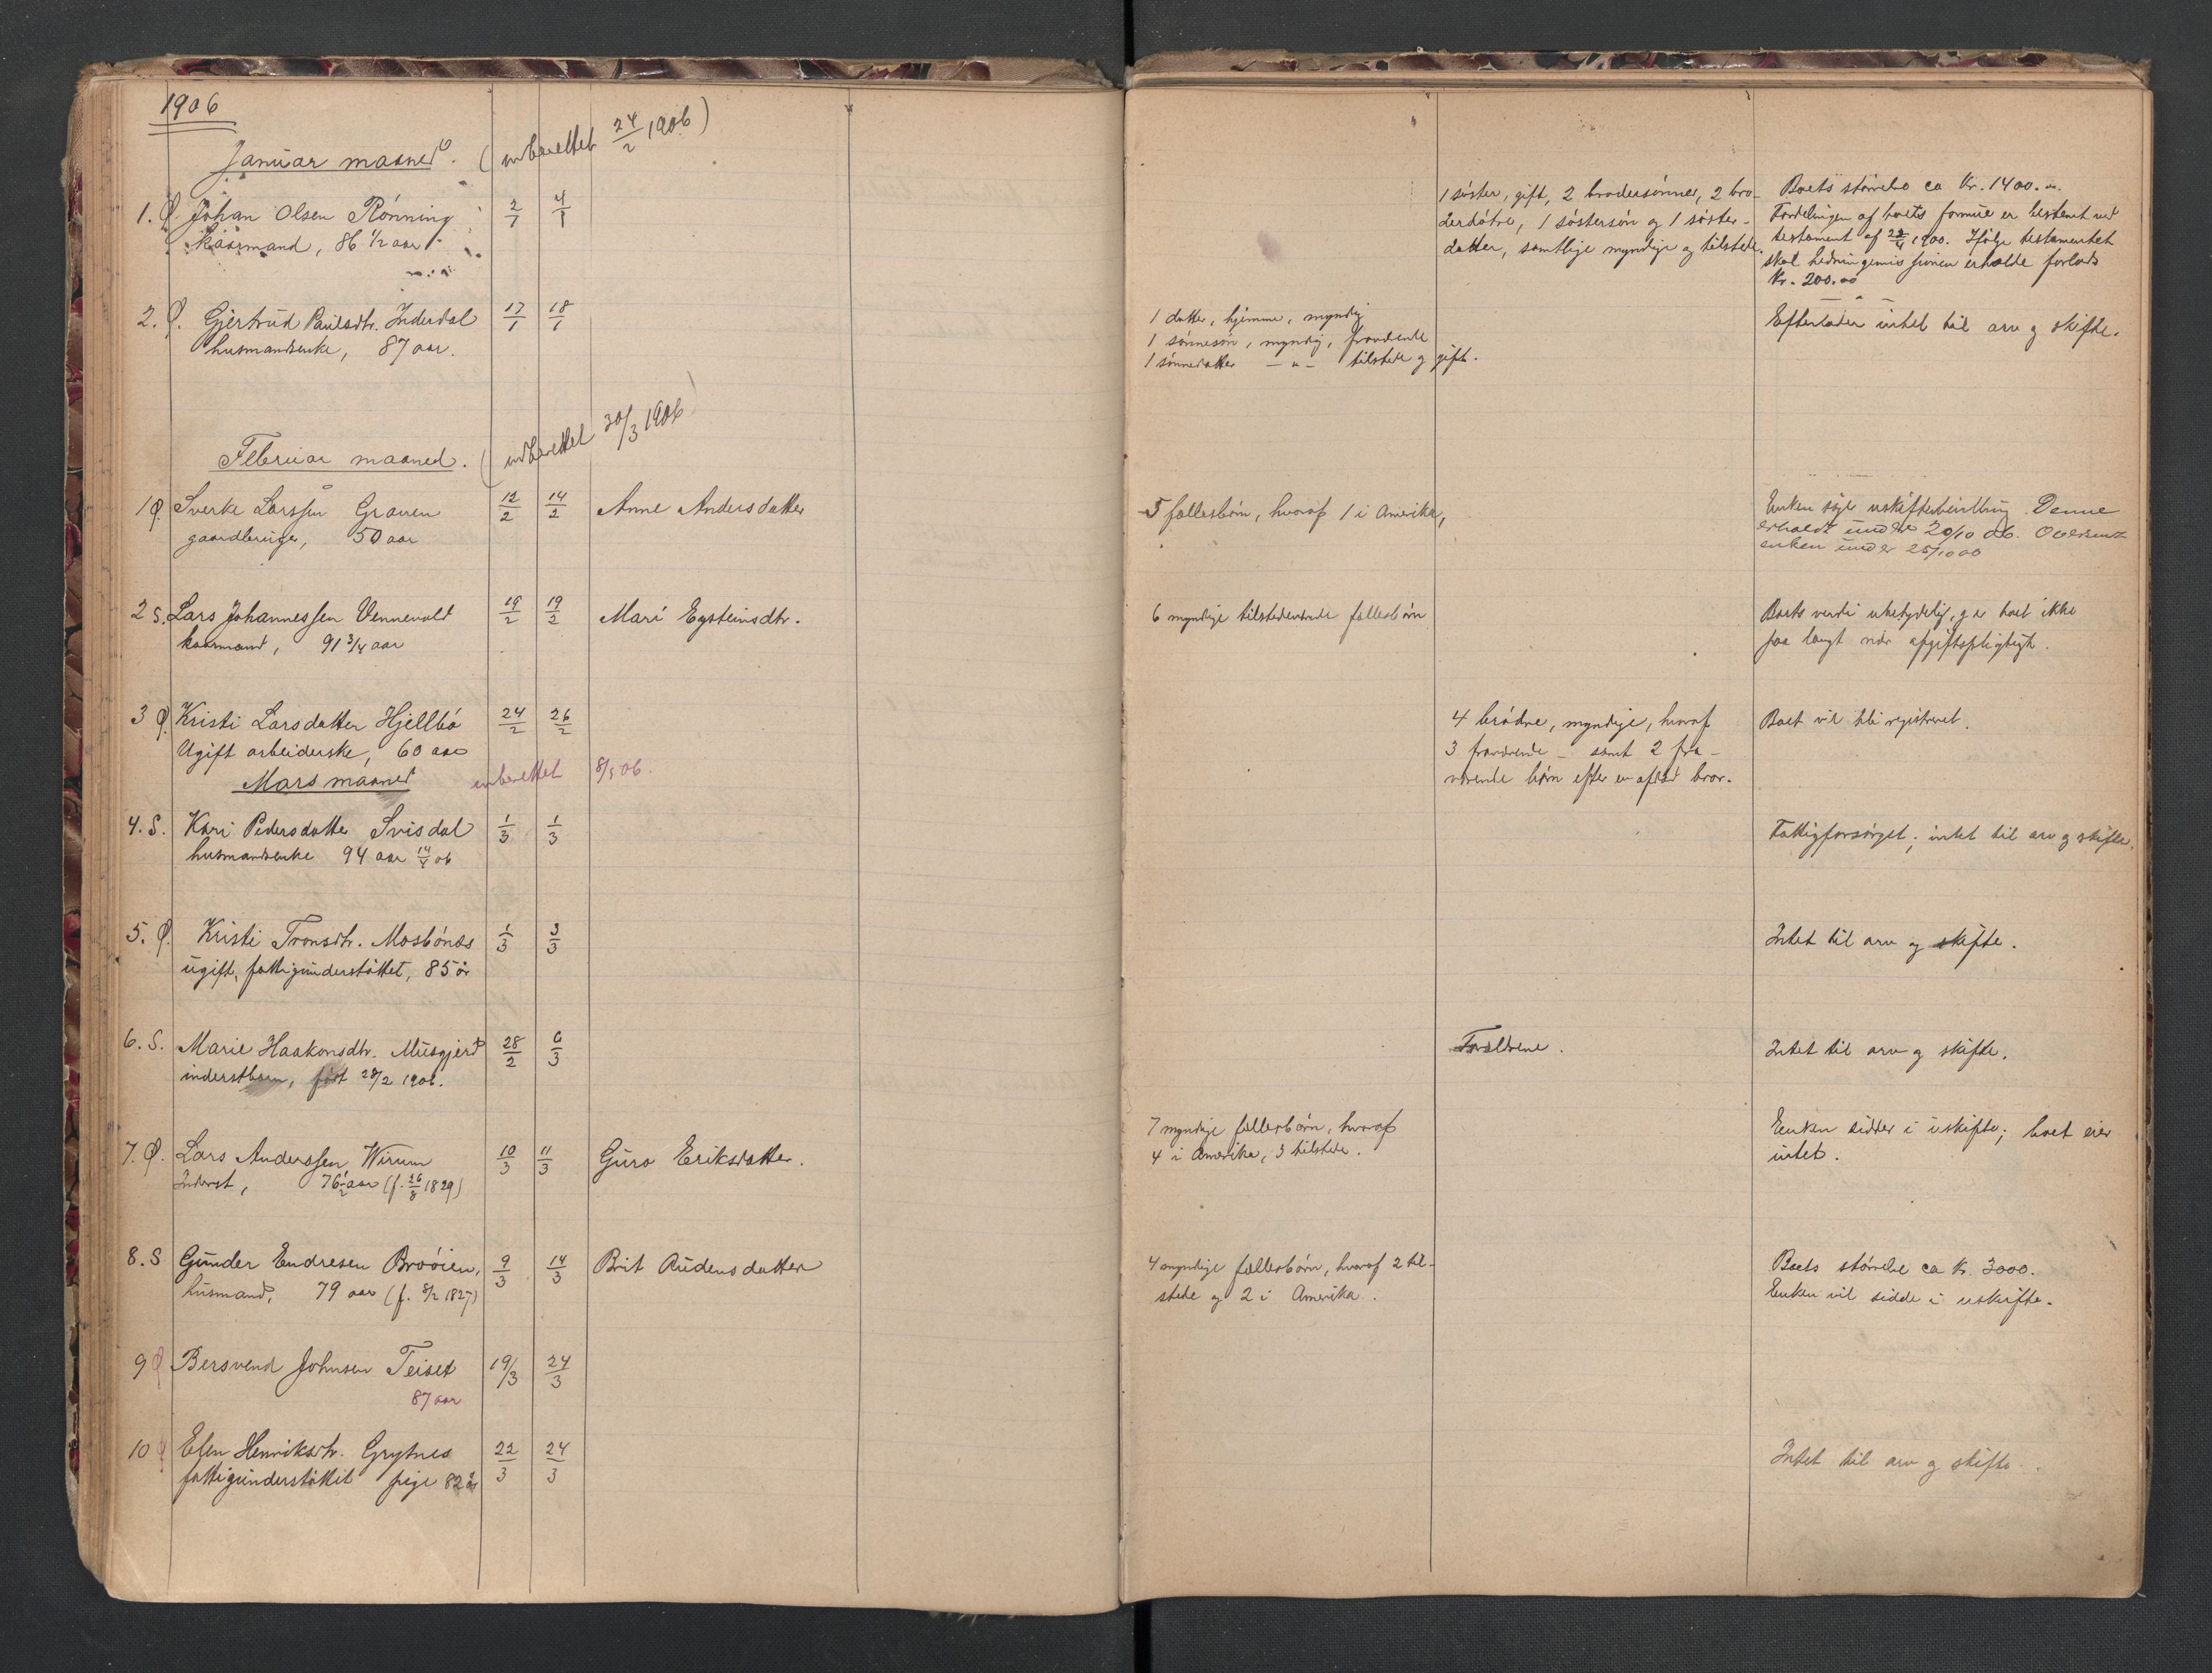 1906
Januar maaned. (indberettet 24/2 1906)
1. Ø. Johan Olsen Rønning 2/1 4/1
kaarmand, 86 1/2 aar
1 søster, gift, 2 brodersønner, 2 bro-
derdøtre, 1 søstersøn og 1 søster-
datter, samtlige myndige og tilstede.
Boets størrelse ca Kr. 1400.
Fordelingen af boets formue er bestemt ved
testament af 1900. Ifølge testamentet
skal erholde forlods
Kr. 200.00
2. Ø. Gjertrud Paulsdtr. Inderdal 17/1 18/1
husmandsenke, 87 aar.
1 datter, hjemme, myndig
1 sønnesøn, myndig, fraværende
1 sønnedatter — " — tilstede og gift.
Efterlader intet til arv og skifte.
Februar maaned. (indberettet 30/3 1906)
1 Ø. Sverke Larssen Graven 12/2 14/2 Anne Andersdatter
gaardbruger, 50 aar
5 fællesbørn, hvoraf 1 i Amerika,
Enken søger uskiftebevilling. Denne
erholdt under 20/10 06. Oversendt
enken under 25/10 06
2 S. Lars Johannessen Vennevold 19/2 19/2 Mari Eysteinsdtr.
kaarmand, 91 3/4 aar
6 myndige tilstedeværende fællesbørn
Boets verdi ubetydelig, og er boet ikke
paa langt nær afgiftspligtigt.
3 Ø. Kristi Larsdatter Hjellbø 24/2 26/2
Ugift arbeiderske, 60 aar
4 brødre, myndige, hvoraf
3 fraværende — samt 2 fra-
værende børn efter en afdød bror.
Boet vil bli registreret.
Mars maaned indberettet 8/5 06.
4. S. Kari Pedersdatter Svisdal 1/3 1/3
husmandsenke 94 aar 14/4 06
Fattigforsørget; intet til arv og skifte.
5. Ø. Kristi Tronsdtr. Mosbønæs 1/3 3/3
ugift, fattigunderstøttet, 85 år
Intet til arv og skifte.
6. S. Marie Haakonsdtr. Musgjerd 28/2 6/3
inderstbarn, født 28/2 1906.
Forældrene.
Intet til arv og skifte.
7. Ø. Lars Anderssen Wirum 10/3 11/3 Guro Eriksdatter.
Inderst, 76 1/2 aar (f. 26/8 1829)
7 myndige fællesbørn, hvoraf
4 i Amerika, 3 tilstede.
Enken sidder i uskifte; boet eier
intet.
8. S Gunder Endresen Broøien, 9/3 14/3 Brit Audensdatter
husmand, 79 aar (f. 8/2 1827)
4 myndige fællesbørn, hvoraf 2 til-
stede og 2 i Amerika.
Boets størrelse ca Kr. 3000.
Enken vil sidde i uskifte.
9 Ø Bersvend Johnsen Teiset 19/3 24/3
87 aar
10 Ø Elen Henriksdtr. Grytnes 22/3 24/3
fattigunderstøttet pige 82 år
Intet til arv og skifte.